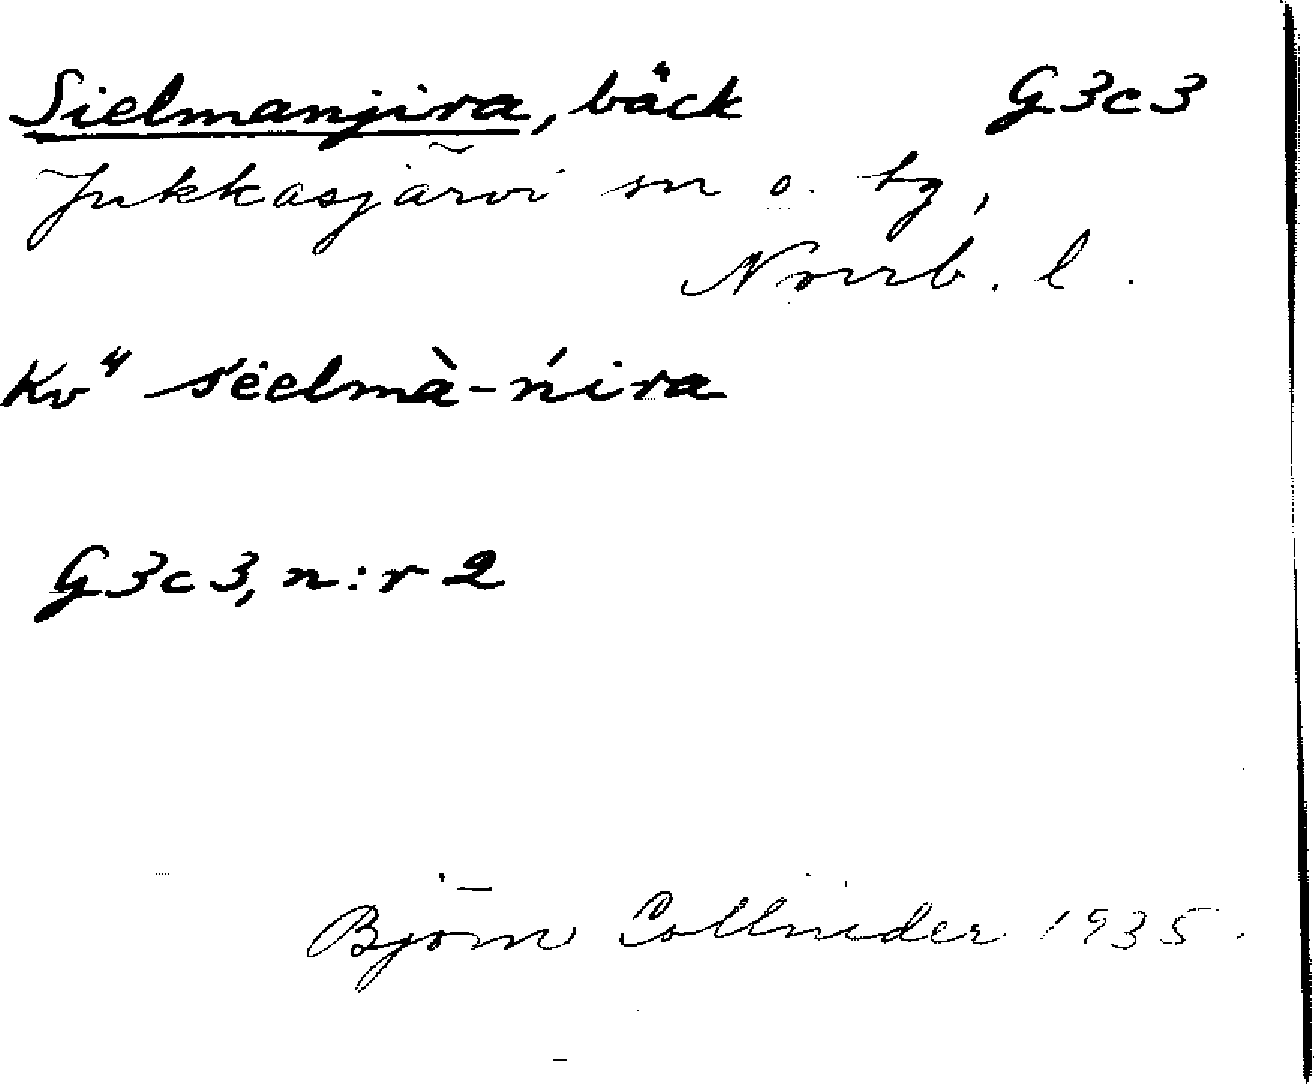 Sielmanjira, bäck G3c3
Jukkasjärvi sn o. tg,
Norrb. l.
Kv" sėelmà-ńira
G3c3, n:r 2
Björn Collinder 1935.